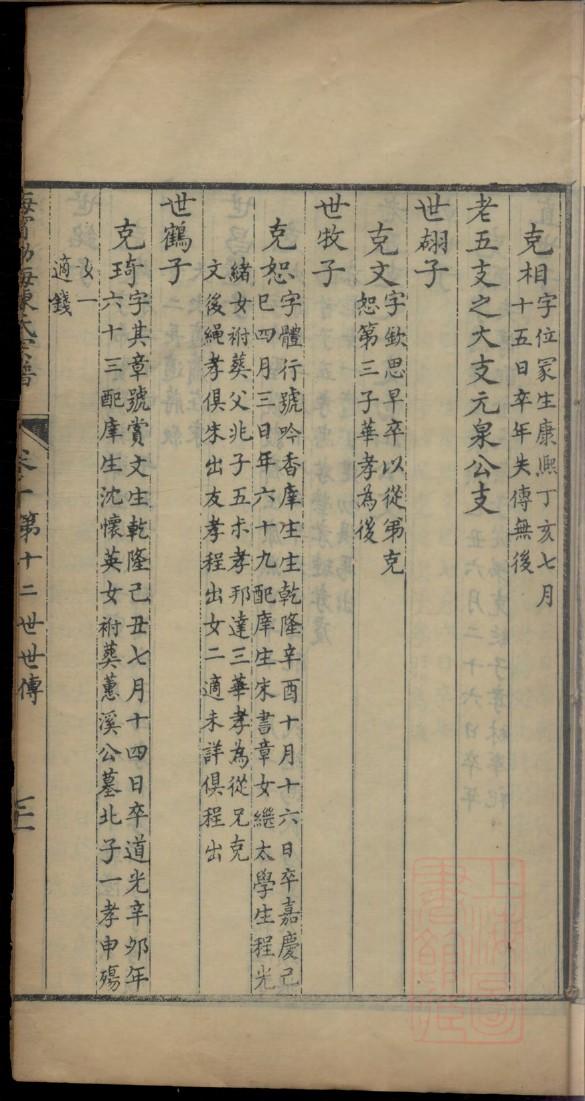 克相字位冢生康熙丁亥七月
十五日卒年失傳無後
老五支之大支元泉公支
世翃子
克文字欽思早卒以從弟克
恕第三子華孝為後
世牧子
克恕字體行號吟香庠生生乾隆辛酉十月十六日卒嘉慶己
巳四月三日年六十九配庠生宋書章女繼太學生程光
緒女祔葬父兆子五 孝邦達三華孝為從兄克
文後繩孝俱朱出友孝程出女二適未詳俱程出
世鶴子
克琦字其章號賞文生乾隆己丑七月十四日卒道光辛卯年
六十三配庠生沈懷英女祔葬蕙溪公墓北子一孝申殤
女一
適錢
海寧渤海陳氏宗譜 卷十 第十二世世傳 三
上海圖書館藏